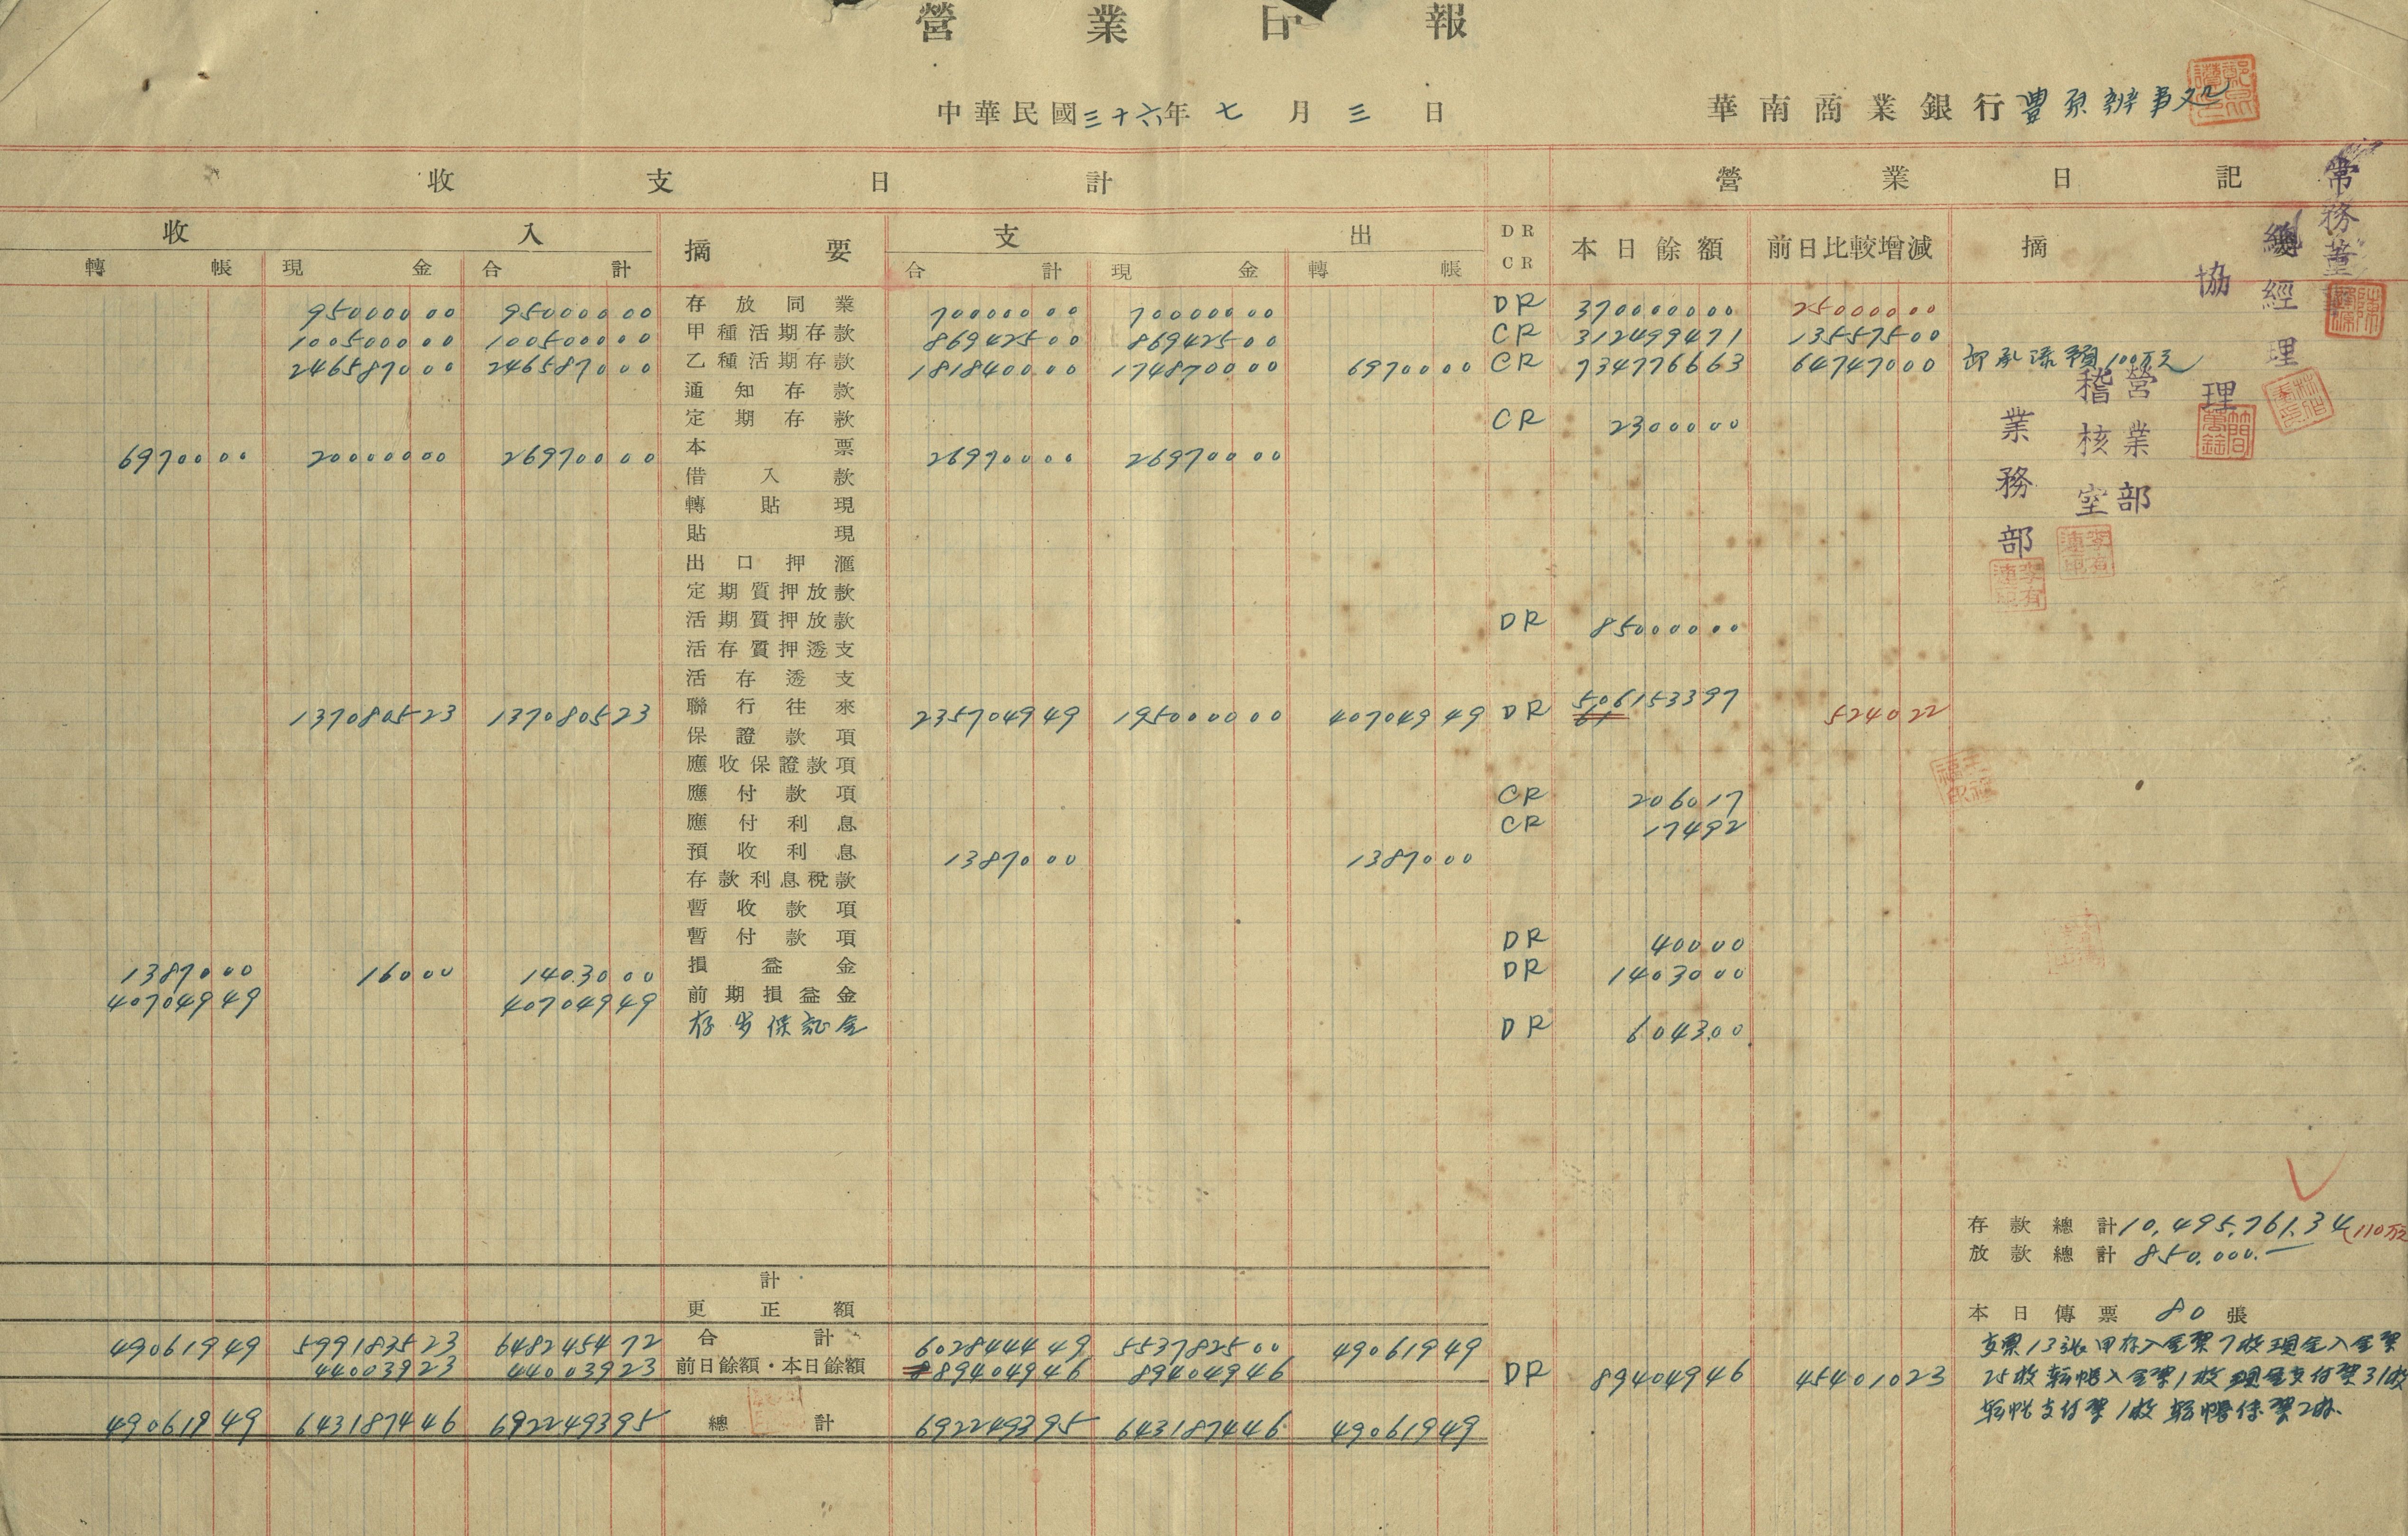 營業日報
中華民國三十六年七月三日
華南商業銀行豐原辦事処
收支日計
營業日記
收入 摘要 支出 DR CR 本日餘額 前日比較增減 摘
轉帳 現金 合計 合計 現金 轉帳
950000 00 950000 00 存放同業 700000 00 700000 00 DR 3700000 00 250000 00
1005000 00 1005000 00 甲種活期存款 869425 00 869425 00 CR 3124994 71 135575 00
2465870 00 2465870 00 乙種活期存款 1818400 00 1748700 00 69700 00 CR 7347766 63 647470 00
通知存款
定期存款 CR 23000 00
69700 00 200000 00 269700 00 本票 269700 00 269700 00
借入款
轉貼現
貼現
出口押滙
定期質押放款
活期質押放款 DR 850000 00
活存質押透支
活存透支
1370805 23 1370805 23 聯行往來 2357049 49 1950000 00 407049 49 DR 5061533 97 5240 22
保證款項
應收保證款項
應付款項 CR 2060 17
應付利息 CR 174 92
預收利息 13870 00 13870 00
存款利息稅款
暫收款項
暫付款項 DR 400 00
13870 00 160 00 14030 00 損益金 DR 14030 00
407049 49 407049 49 前期損益金
存出保証金 DR 6043.00
存款總計 10,495,761.34 110万元
放款總計 850,000.—
計
更正額
本日傳票 80 張
490619 49 5991835 23 6482454 72 合計 6028444 49 5537825 00 490619 49
440039 23 440039 23 前日餘額・本日餘額 894049 46 894049 46 DR 894049 46 454010 23
490619 49 6431874 46 6922493 95 總計 6922493 95 6431874 46 490619 49
支票13張甲存入金票7枚現金入金票
25枚転帳入金票1枚現金支付票31枚
転帳支付票1枚転帳票2枚
常務董事
總經理
協理
營業部
稽核室
業務部